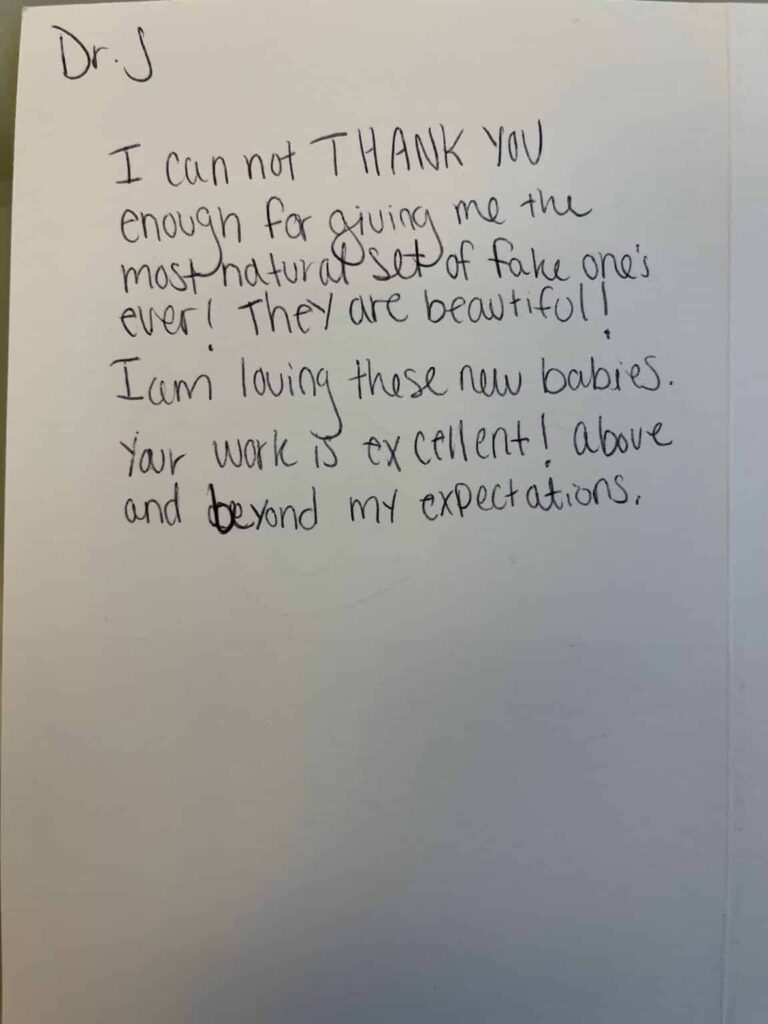 Dr. J
I can not THANK YOU
enough for giving me the
most natural set of fake one's
ever! They are beautiful!
I am loving these new babies.
Your work is excellent! above
and beyond my expectations.